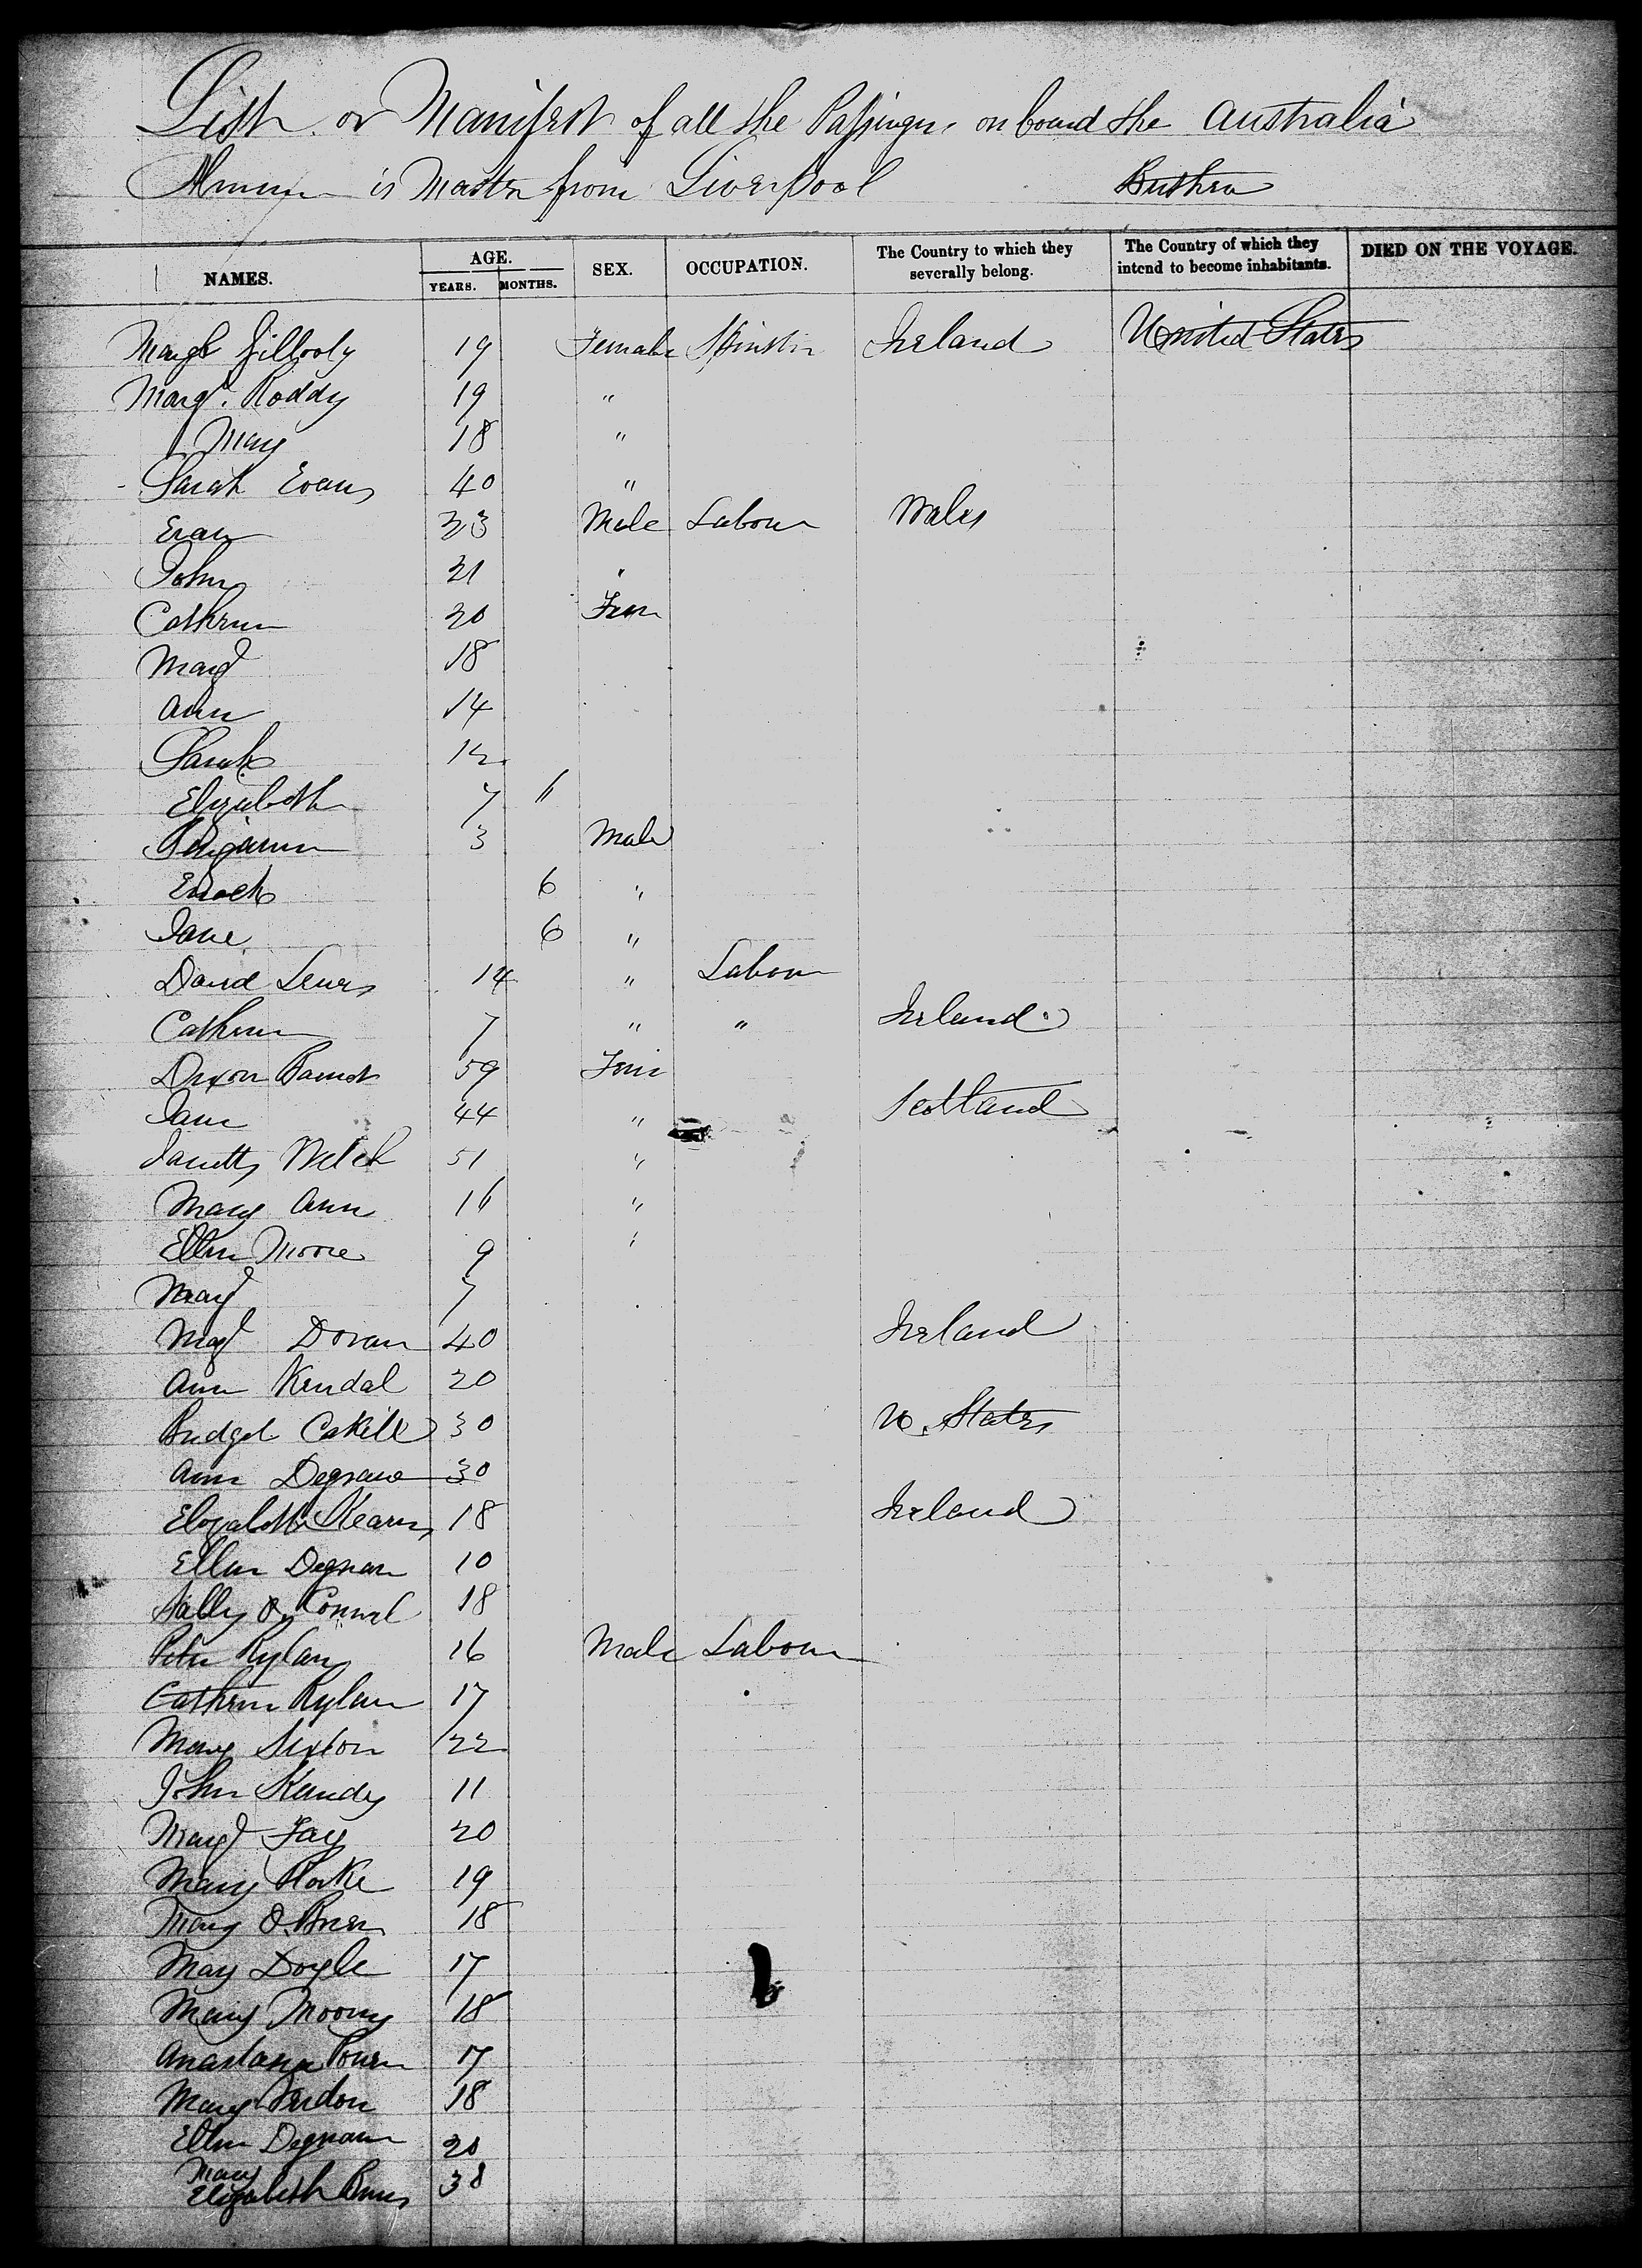 List or Manifest of all the Passengers on board the Australia
is Master from Liverpool
NAMES. AGE. YEARS. MONTHS. SEX. OCCUPATION. The Country to which they severally belong. The Country of which they intend to become inhabitants. DIED ON THE VOYAGE.
Margt Gillooly 19 Female Spinster Ireland United States
Margt. Roddy 19 "
Mary 18 "
Sarah Evans 40 "
Evan 23 Male Labour Wales
John 21 "
Cathrine 20 Fem
Margt 18
Ann 14
Sarah 12
Elizabeth 7 "
Benjamin 3 Male
Enoch 6 "
Jane 6 "
David Lewis 14 " Labour
Cathrine 7 " " Ireland
Dixon 59 Fem
Jane 44 " Scotland
Janett Welch 51 "
Mary Ann 16 "
Ellen Moore 9 "
Margt 7
Magt Doran 40 Ireland
Ann Kendal 20
Bridget Cahill 30 U. States
Ann Degnan 30
Elizabeth Kearns 18 Ireland
Ellen Degnan 10
Sally O Connel 18
Peter Rylan 16 Male Labour
Cathrine Rylan 17
Mary Sexton 22
John Kendy 11
Margt Fay 20
Mary Rorke 19
Mary O.Brien 18
Mary Doyle 17
Mary Moony 18
Anastasia Power 17
Mary 18
Ellen Degnan 20
Mary
Elizabeth Burns 38